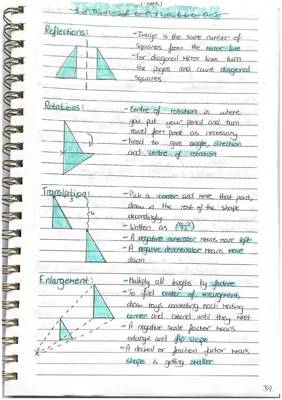 Transformations
Reflections:
- Image is the same number of
squares from the mirror line
- For diagonal mirror lines turn
the pages and count diagonal
squares
Rotations:
- Centre of rotation is where
you put your pencil and turn
point as necessary
- Need to give angle, direction
and centre of rotation
Translation:
- Pick a corner and move that point,
draw in the rest of the shape
accordingly
- Written as
- A negative numerator means move left
- A negative denominator means move
down
Enlargement:
- Multiply all lengths by factor
- To find center of enlargement,
draw rays connecting each matching
corner and extend until they meet
- A negative scale factor means
enlarge and flip shape
- A decimal or fraction factor means
shape is getting smaller
39